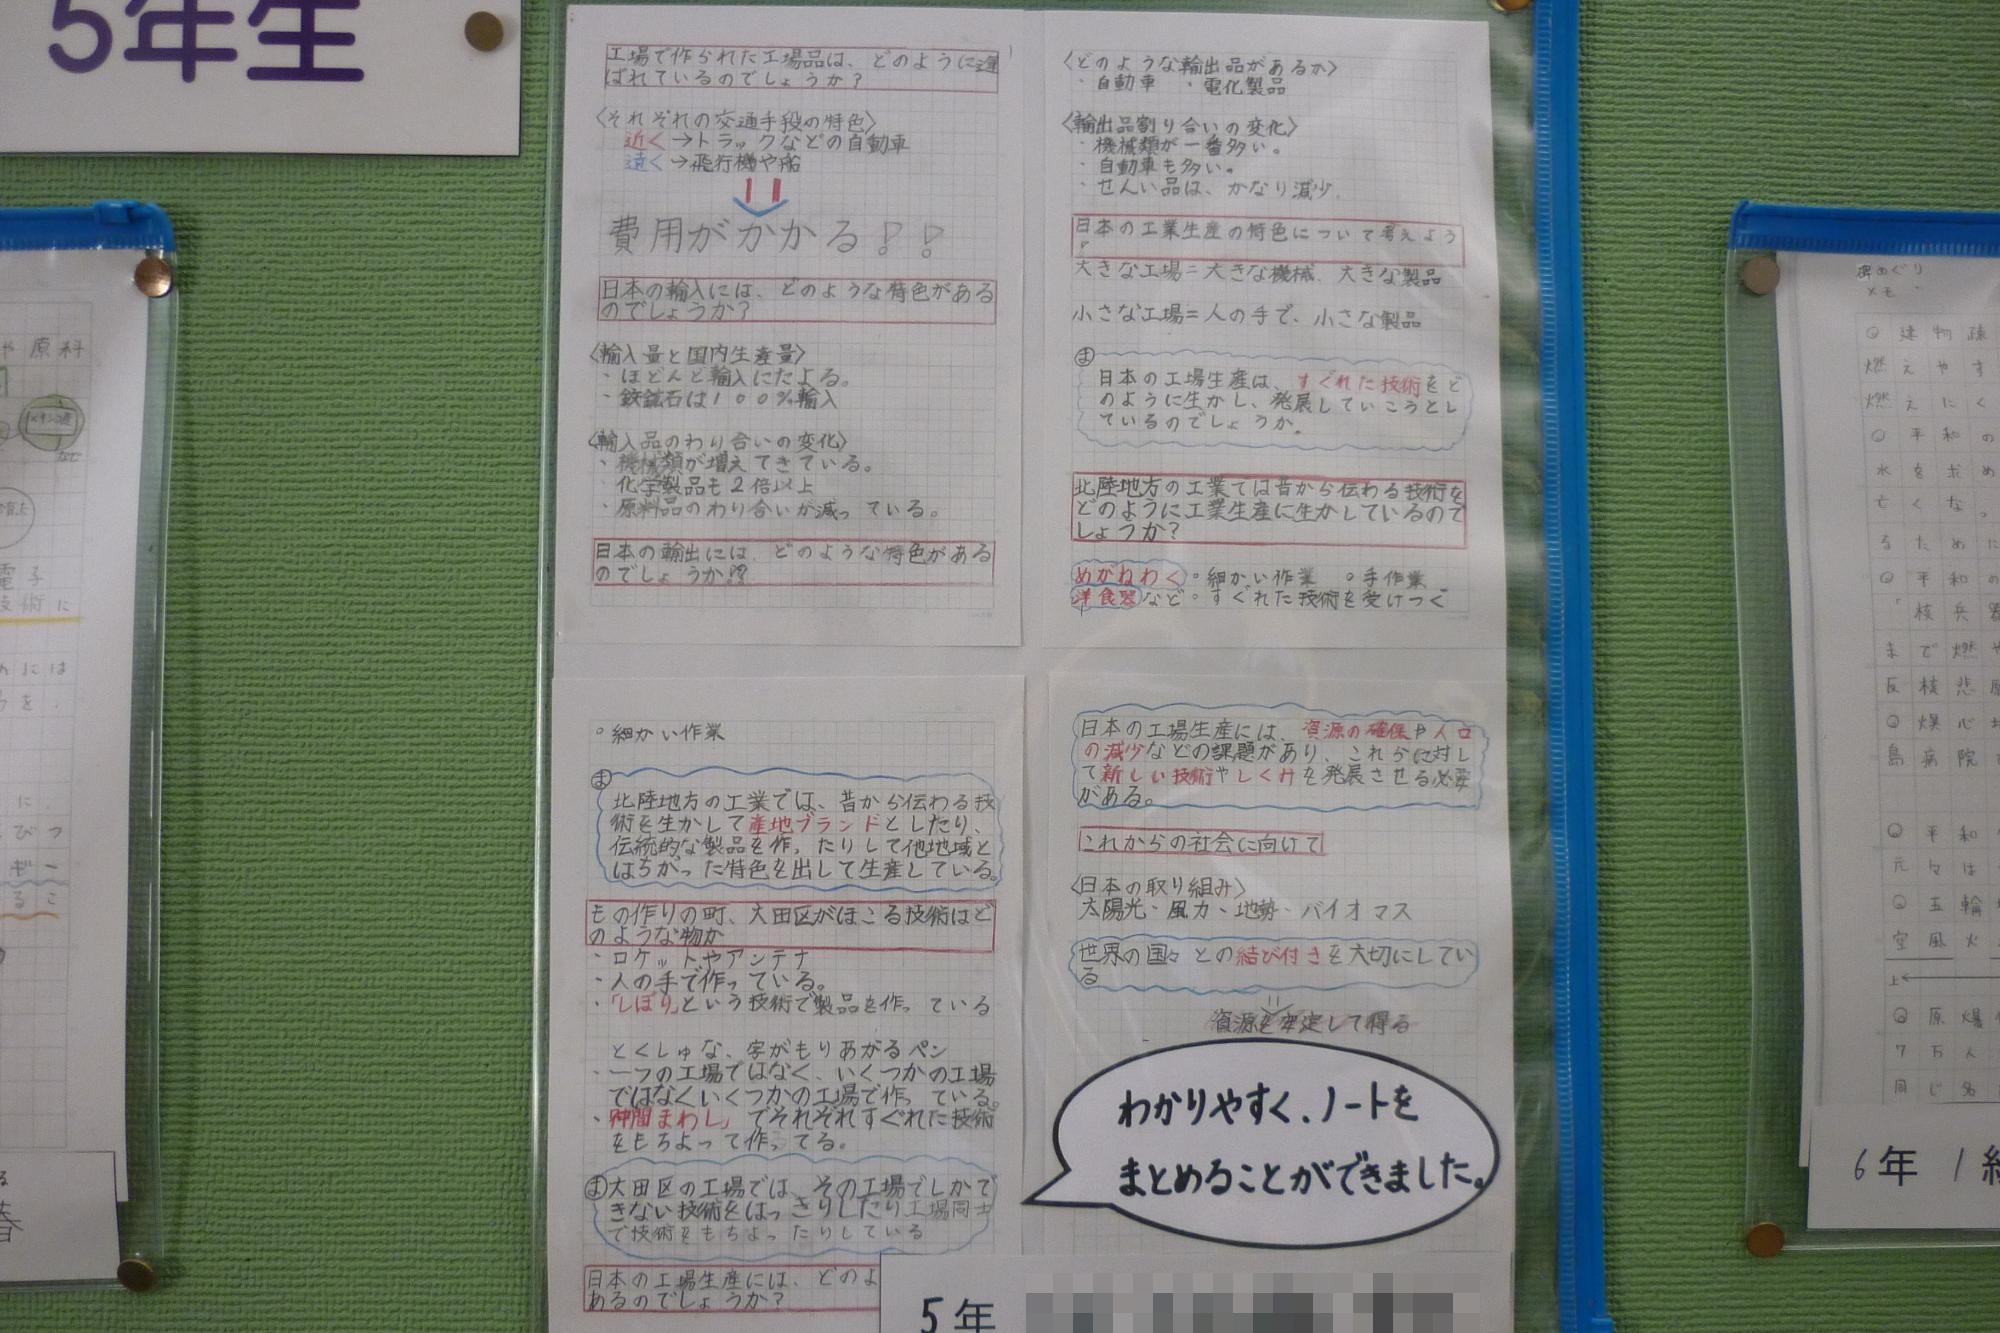 5年生
工場で作られた工場品は、どのように運
ばれているのでしょうか？
〈それぞれの交通手段の特色〉
近く→トラックなどの自動車
遠く→飛行機や船
費用がかかる！！
日本の輸入には、どのような特色がある
のでしょうか？
〈輸入量と国内生産量〉
・ほどんと輸入にたよる。
・鉄鉱石は100％輸入
〈輸入品のわり合いの変化〉
・機械類が増えてきている。
・化学製品も2倍以上
・原料品のわり合いが減っている。
日本の輸出には、どのような特色がある
のでしょうか!?
〈どのような輸出品があるか〉
・自動車　・電化製品
〈輸出品割り合いの変化〉
・機械類が一番多い。
・自動車も多い。
・せんい品は、かなり減少。
日本の工業生産の特色について考えよう
大きな工場=大きな機械、大きな製品
小さな工場=人の手で、小さな製品
ま
日本の工場生産は、すぐれた技術をど
のように生かし、発展していこうとし
ているのでしょうか。
北陸地方の工業では昔から伝わる技術を
どのように工業生産に生かしているので
しょうか？
めがねわく。細かい作業　。手作業
洋食器など。すぐれた技術を受けつぐ
。細かい作業
ま
北陸地方の工業では、昔から伝わる技
術を生かして産地ブランドとしたり、
伝統的な製品を作ったりして他地域と
はちがった特色を出して生産している。
もの作りの町、大田区がほこる技術はど
のような物か
・ロケットやアンテナ
・人の手で作っている。
・「しぼり」という技術で製品を作っている
とくしゅな、字がもりあがるペン
・一つの工場ではなく、いくつかの工場
ではなくいくつかの工場で作っている。
・「仲間まわし」でそれぞれすぐれた技術
をもちよって作ってる。
ま大田区の工場では、その工場でしかで
きない技術をはっきりしたり工場同士
で技術をもちよったりしている
日本の工場生産には、どのよ
あるのでしょうか？
日本の工場生産には、資源の確保や人口
の減少などの課題があり、これらに対し
て新しい技術やしくみを発展させる必要
がある。
これからの社会に向けて
〈日本の取り組み〉
太陽光・風力・地勢・バイオマス
世界の国々との結び付きを大切にしてい
る
資源を安定して得る
わかりやすく、ノートを
まとめることができました。
5年
や原料
電子
技術に
には
碑めぐり
メモ
建物疎
燃えやす
燃えにく
平和の
水を求め
亡くな
るために
平和の
核兵器
まで燃や
反核悲願
爆心地
島病院
平和
元々は
五輪
空風火
上←
原爆
7万人
同じ名
6年 1組